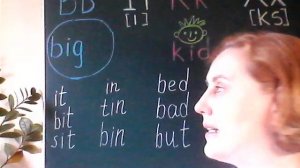 Bb Ii Kk Xx
[I] [KS]
big kid
it in bed
bit tin bad
sit bin but